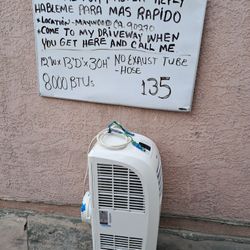 HABLEME PARA MAS RAPIDO
•LOCATION- MAYWOOD CA. 90270
•COME TO MY DRIVEWAY WHEN
YOU GET HERE AND CALL ME
12"W x 13"D x 30H" NO EXHAUST TUBE
-HOSE
8000 BTUs $35